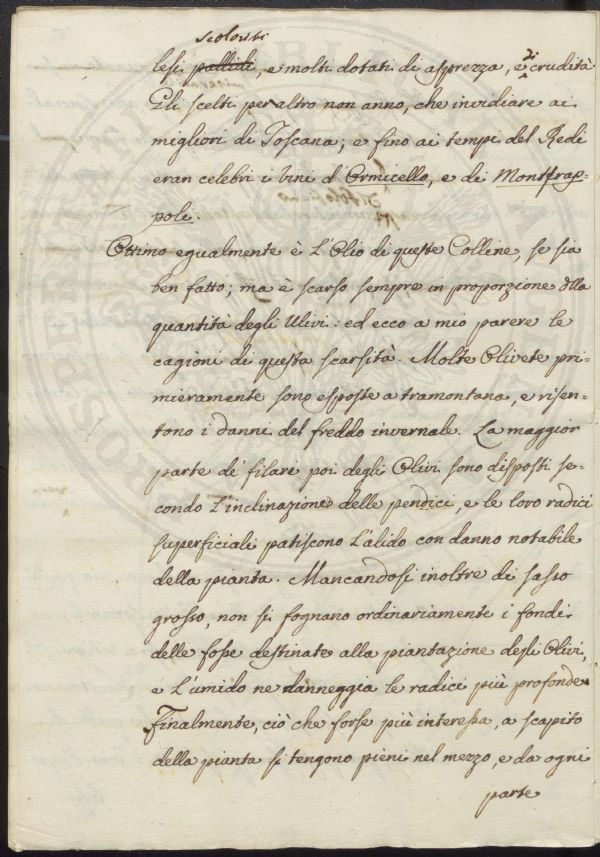 scoloriti
lesi pallidi, e molti dotati di asprezza, e di crudità
Gli scelti per altro non anno, che invidiare ai
migliori di Toscana; e fino ai tempi del Redi
eran celebri i Vini d'Ormicello, e di Montfrap=
poli.
Ottimo egualmente è l'Olio di queste Colline se sia
ben fatto; ma è scarso sempre in proporzione dlla
quantità degli Ulivi: ed ecco a mio parere le
cagioni di questa scarsità. Molte Olivete pri=
mieramente sono esposte a tramontana, e risen=
tono i danni del freddo invernale. La maggior
parte de' filari poi degli Olivi sono disposti se=
condo l'inclinazione delle pendici, e le loro radici
superficiali patiscono l'alido con danno notabile
della pianta. Mancandosi inoltre di sasso
grosso, non si fognano ordinariamente i fondi
delle fosse destinate alla piantazione degli Olivi,
e l'umido ne danneggia le radici più profonde
Finalmente, ciò che forse più interessa, a scapito
della pianta si tengono pieni nel mezzo, e da ogni
parte